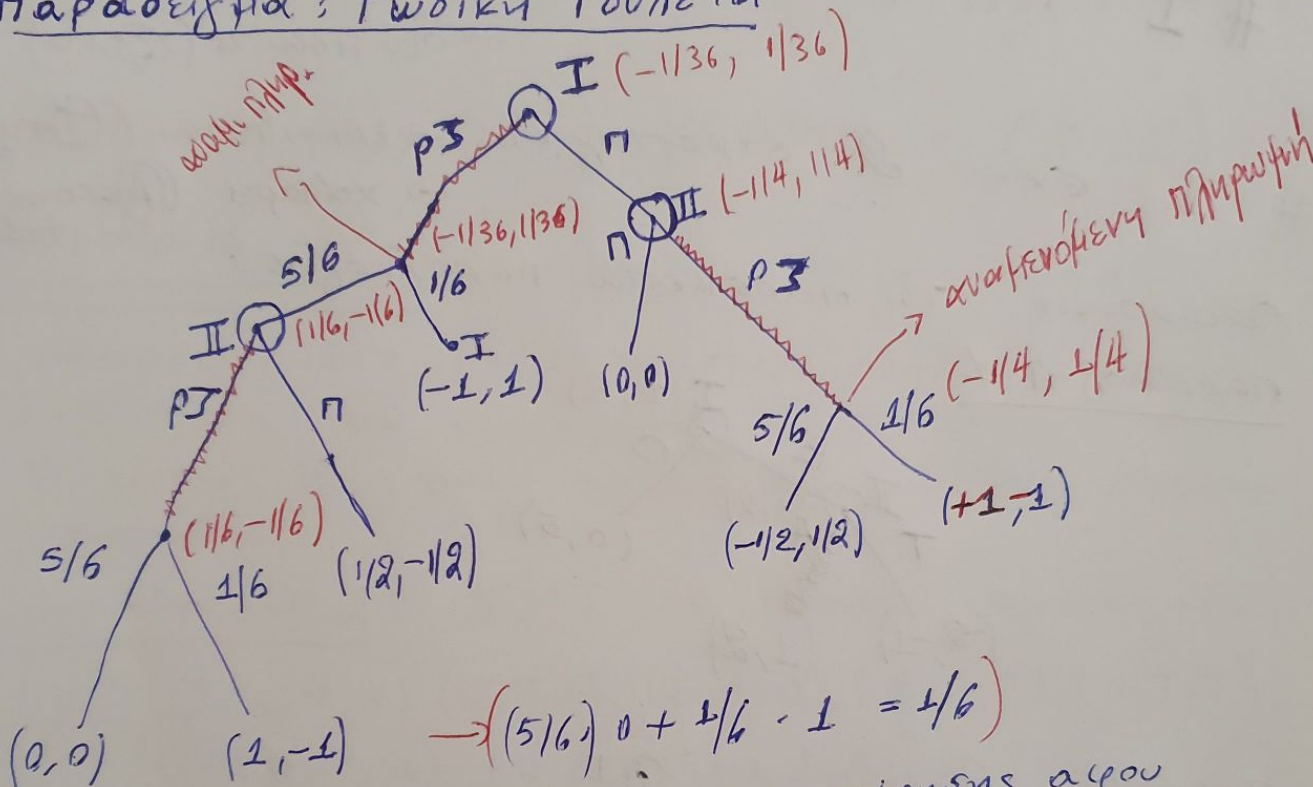 Παράδειγμα: Ρωσικη Ρουλέτα
I (-1/36, 1/36)
αναμ. πληρ.
ρΙ
Π
II (-1/4, 1/4)
(-1/36, 1/36)
5/6
1/6
Π
ρΙ
αναμενόμενη πληρωμή
II
(1/6, -1/6)
I
(-1, 1)
(0,0)
(-1/4, 1/4)
ρΙ
Π
5/6
1/6
(1/6, -1/6)
(1/2, -1/2)
(-1/2, 1/2)
(+1,-1)
5/6
1/6
(0,0)
(1,-1)
→ ((5/6) 0 + 1/6 · 1 = 1/6)
αφου